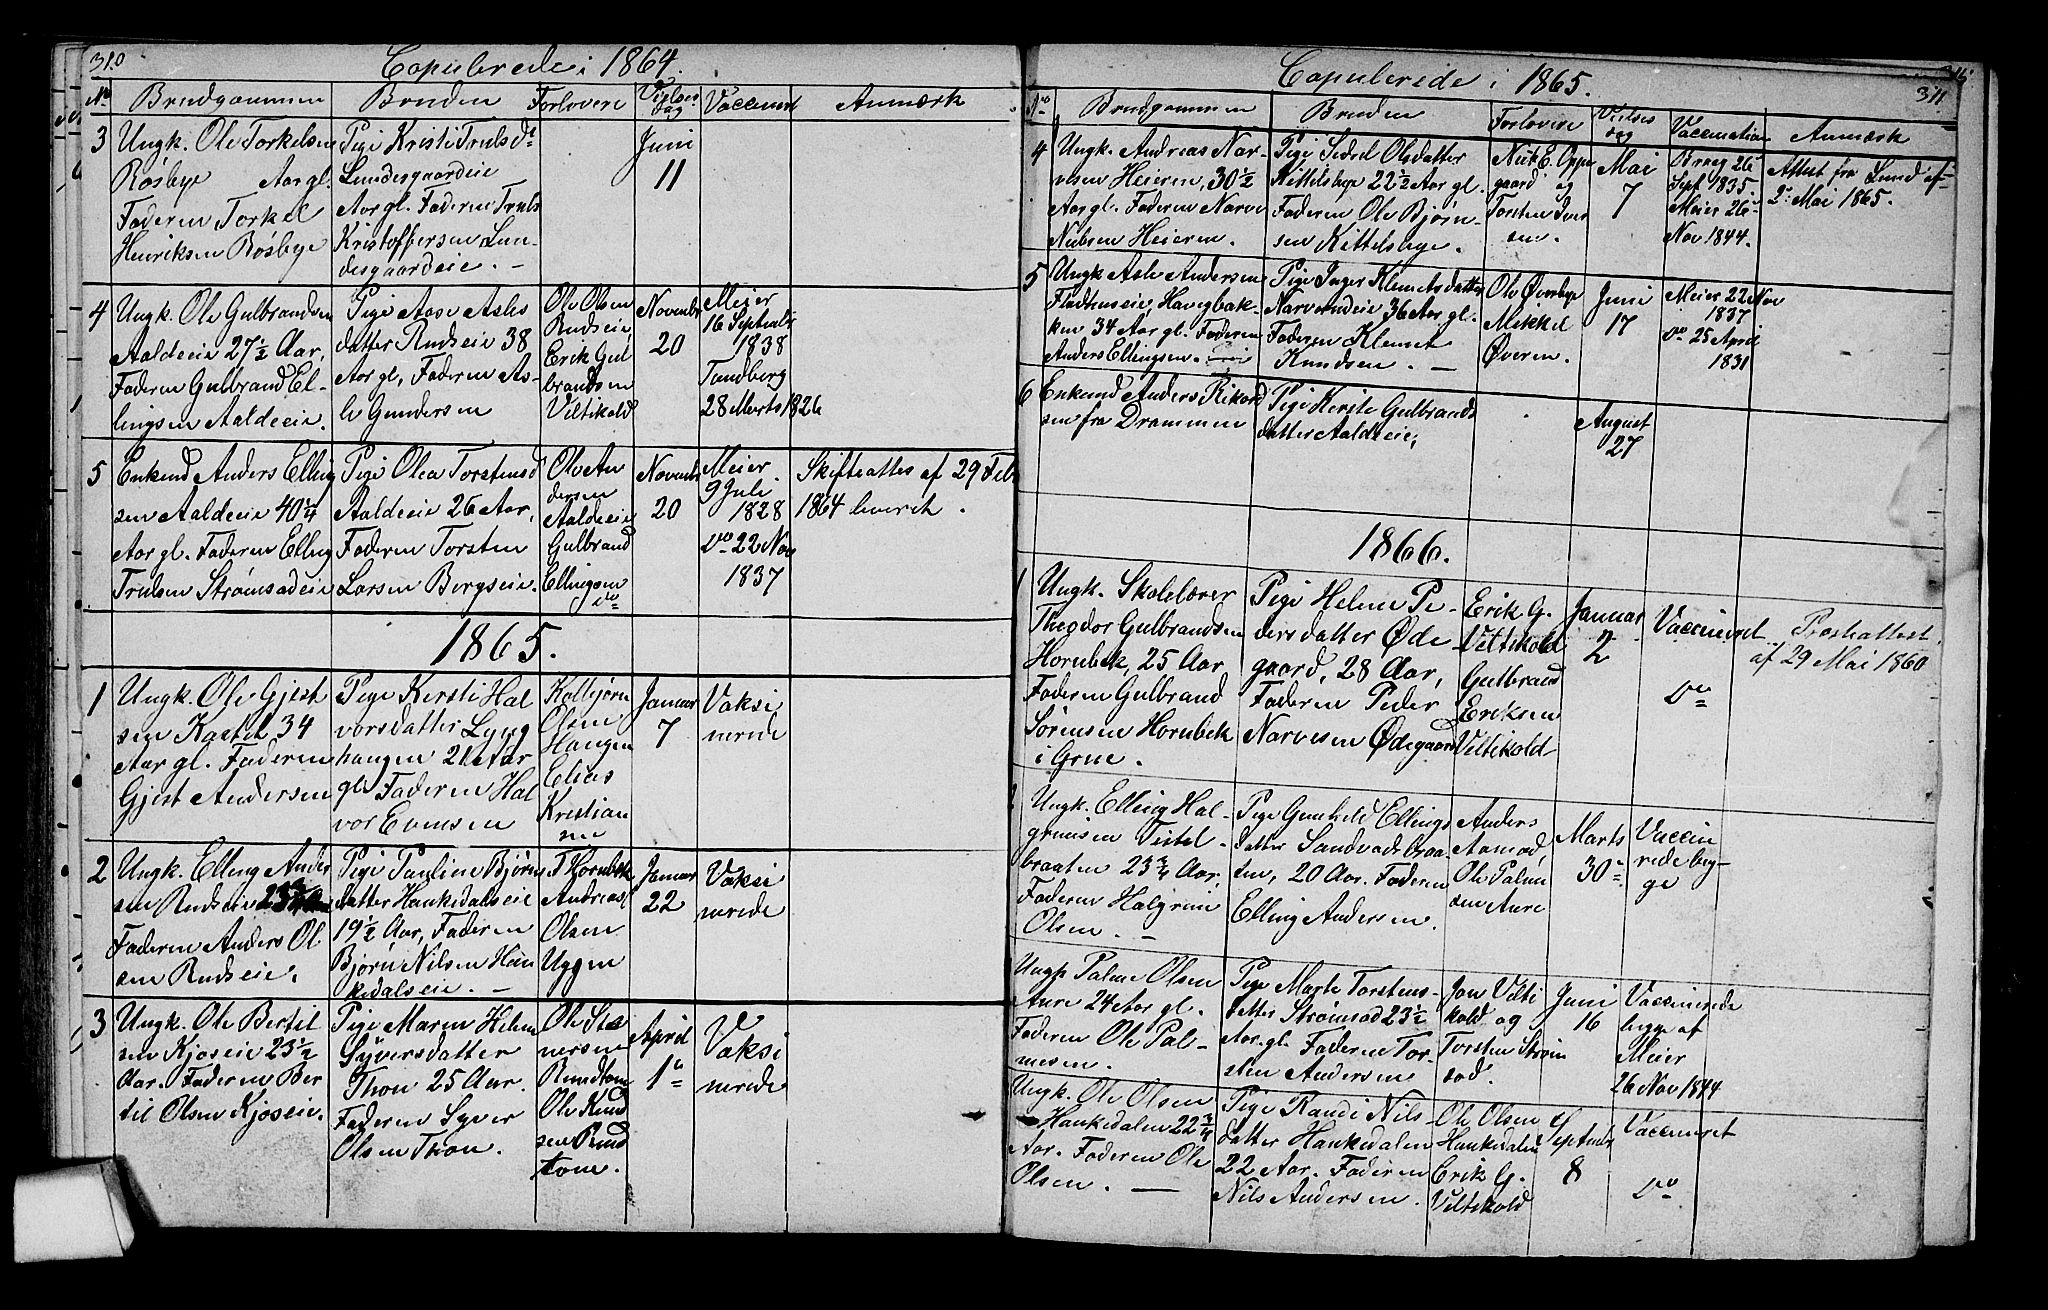 310
Copulerede i 1864.
No Brudgommen Bruden Forlovere Vielses dag Vaccineret Anmærk
3
Ungk. Ole Torkelsen
Røsbye Aar gl.
Faderen Torkel
Henriksen Røsbye
Pige Kristi Trulsdr
Lundesgaardeie
Aar gl. Faderen Truls
Kristoffersen Lun-
desgaardeie. -
Juni
11
4
Ungk. Ole Gulbrandsen
Aaldeeie 27 1/2 Aar,
Faderen Gulbrand El-
lingsen Aaldeeie.
Pige Aase Asles
datter Rudseie 38
Aar gl, Faderen As-
le Gundersen
Ole Olsen
Rudseie
Erik Gul
brandsen
Viltikold
Novembr
20
Meier
16 Septembr
1838
Tandberg
28 Marts 1826
5
Enkemd Anders Elling
sen Aaldeeie 40 1/4
Aar gl. Faderen Elling
Trulsen Strømsodeie
Pige Olea Torstensd
Aaldeeie 26 Aar,
Faderen Torsten
Larsen Bergseie.
Ole An
dersen
Aaldeeie
Gulbrand
Ellingsen
do
Novembr
20
Meier
9 Juli
1828
do 22 Nov
1837
Skifteattes af 29 Feb
1864 leveret.
1865.
1
Ungk. Ole Gjest
sen Kastet 34
Aar gl. Faderen
Gjest Andersen
Pige Kersti Hal
vorsdatter Lyng
haugen 21 Aar
gl. Faderen Hal
vor Evensen
Kolbjørn
Olsen
Haugen
Elias
Kristian
sen
Januar
7
Vaksi
nerede
2
Ungk. Elling Ander
sen Rudseie
Faderen Anders Ol
sen Rudseie.
Pige Pauline Bjørns
datter Hankedalseie
19 1/2 Aar, Faderen
Bjørn Nilsen Han
kedalseie. -
T Hornbek
Andreas
Olsen
Uggen
Januar
22
Vaksi
nerede
3
Ungk. Ole Bertil
sen Kjoseie 23 1/2
Aar. Faderen Ber
til Olsen Kjoseie.
Pige Maren Helene
Syversdatter
Thon 25 Aar.
Faderen Syver
Olsen Thon.
Ole Ste
nersen
Rundtom
Ole Knud
sen Rund
tom.
April
1
Vaksi
nerede
311
Copulerede i 1865.
No Brudgommen Bruden Forlovere Vielses dag Vaccination Anmærk
4
Ungk. Andreas Nar-
vesen Heieren, 30 1/2
Aar gl. Faderen Narve
Nielsen Heieren.
Pige Sidsel Olsdatter
Kittelsbye 22 1/2 Aar gl.
Faderen Ole Bjørn-
sen Kittelsbye.
Niels E. Oppe
gaard og
Torsten Iver
sen.
Mai
7
26
Sept 1835.
Meier 26
Nov 1844.
Attest fra Lund af
2 Mai 1865.
5
Ungk Asle Andersen
Fladhuseie, Havigbak-
ken 34 Aar gl. Faderen
Anders Ellingsen.
Pige Inger Klemetsdatter
Narverudeie 36 Aar gl.
Faderen Klemet
Knudsen. -
Ole Øverbye
Mikkel
Øveren.
Juni
17
Meier 22 Nov
1837
do 25 April
1831
6
Enkemd Anders Rikard
sen fra Drammen
Pige Kersti Gulbrands
datter Aaldeeie,
August
27
1866.
1
Ungk. Skolelærer
Theodor Gulbrandsen
Hornbek, 25 Aar
Faderen Gulbrand
Sørensen Hornbek
i Grue.
Pige Helene Pe-
dersdatter Øde
gaard, 28 Aar,
Faderen Peder
Narvesen Ødegaard
Erik G.
Viltikold
Gulbrand
Eriksen
Viltikold
Januar
2
Vaccineret
do
Presteattest
af 29 Mai 1860
Ungk. Elling Hal-
grimsen Tistel-
braaten 23 3/4 Aar,
Faderen Halgrim
Olsen. -
Pige Gunhild Ellings
datter Sandvadsbraa
ten, 20 Aar. Faderen
Elling Andersen.
Anders
Aamod,
Ole Palme
sen Aure
Marts
30
Vaccin
rede beg-
ge
Ungk Palme Olsen
Aure 24 Aar gl.
Faderen Ole Pal-
mesen.
Pige Marte Torstens-
datter Strømsod 23 1/2
Aar gl. Faderen Tor-
sten Andersen
Jon Vilti
kold og
Torsten Strøm
sod.
Juni
16
Vaccinerede
begge af
Meier
26 Nov 1844
Ungk. Ole Olsen
Hankedalen 22 3/4
Aar. Faderen Ole
Olsen. -
Pige Randi Nils-
datter Hankedalen
22 Aar. Faderen
Nils Andersen.
Ole Olsen
Hankedalen
Erik G.
Viltikold
Septembr
8
Vaccineret
do